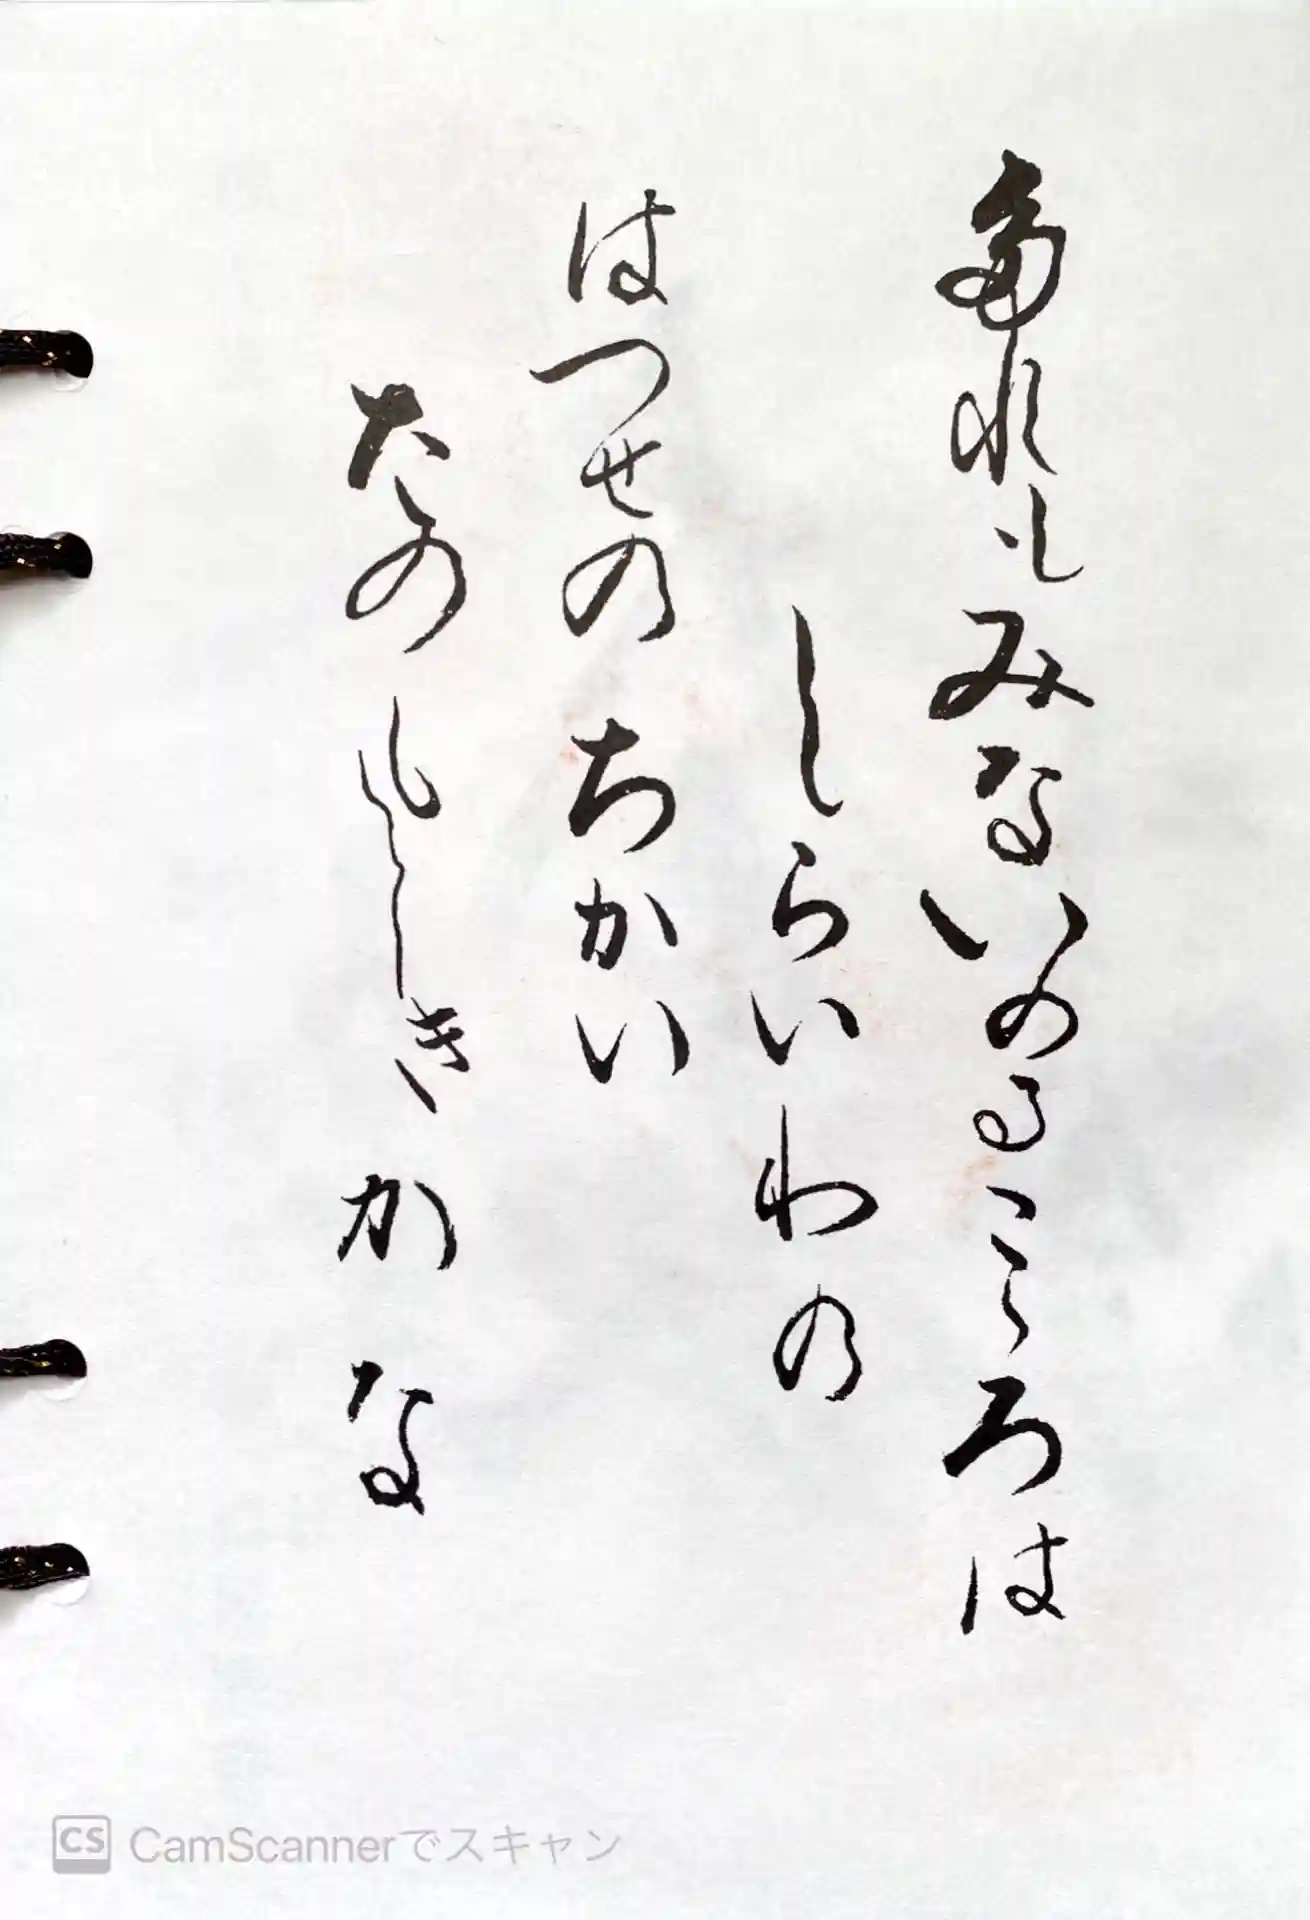 たれもみないのるこゝろは
しらいわの
はつせのちかい
たのもしきかな
CamScannerでスキャン